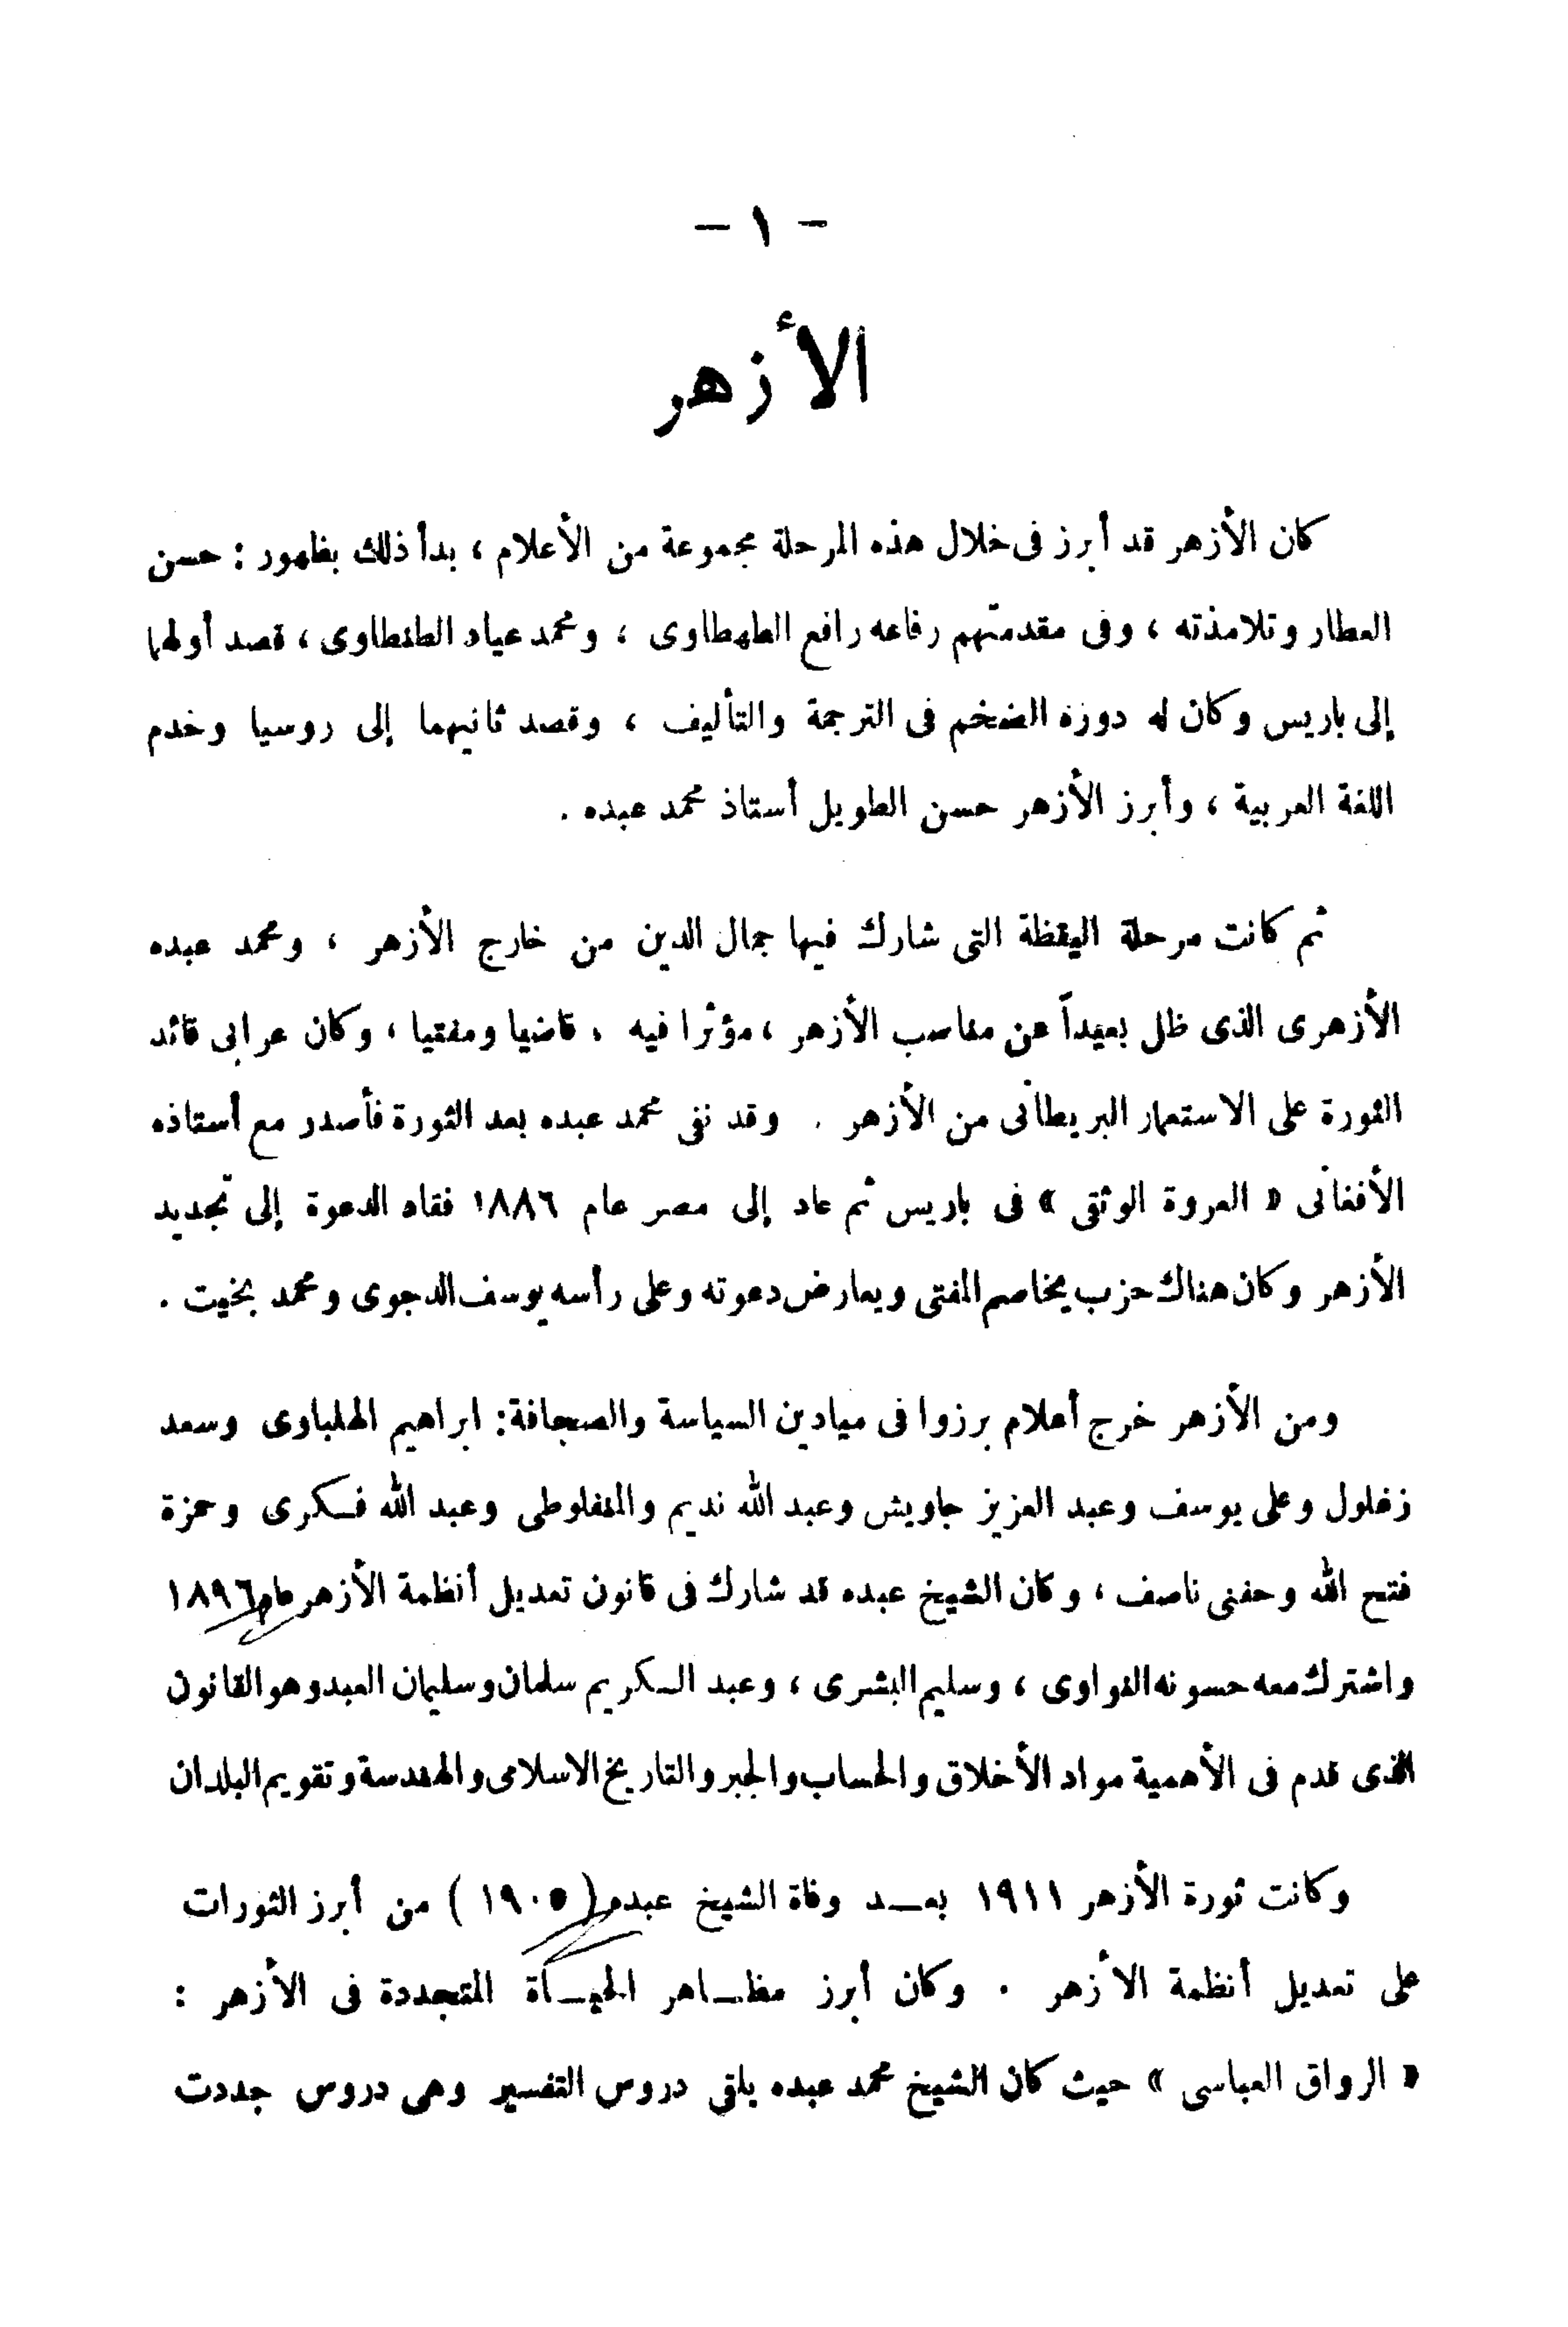 – ١ –
الأزهر
كان الأزهر قد أبرز فى خلال هذه المرحلة مجموعة من الأعلام ، بدأ ذلك بظهور : حسن
العطار وتلامذته ، وفى مقدمتهم رفاعه رافع الطهطاوى ، ومحمد عياد الطنطاوى ، قصد أولهما
إلى باريس وكان له دوره الضخم فى الترجمة والتأليف ، وقصد ثانيهما إلى روسيا وخدم
اللغة العربية ، وأبرز الأزهر حسن الطويل أستاذ محمد عبده .
ثم كانت مرحلة اليقظة التى شارك فيها جمال الدين من خارج الأزهر ، ومحمد عبده
الأزهرى الذى ظل بعيداً عن مناصب الأزهر ، مؤثرا فيه ، قاضيا ومفتيا ، وكان عرابى قائد
الثورة على الاستعمار البريطانى من الأزهر . وقد نفى محمد عبده بعد الثورة فأصدر مع أستاذه
الأفغانى « العروة الوثقى » فى باريس ثم عاد إلى مصر عام ١٨٨٦ فقاد الدعوة إلى تجديد
الأزهر وكان هناك حزب يخاصم المفتى ويعارض دعوته وعلى رأسه يوسف الدجوى ومحمد بخيت .
ومن الأزهر خرج أعلام برزوا فى ميادين السياسة والصحافة : ابراهيم الهلباوى وسعد
زغلول وعلى يوسف وعبد العزيز جاويش وعبد الله نديم والمنفلوطى وعبد الله فكرى وحمزة
فتح الله وحفنى ناصف ، وكان الشيخ عبده قد شارك فى قانون تعديل أنظمة الأزهر عام ١٨٩٦
واشترك معه حسونه النواوى ، وسليم البشرى ، وعبد الكريم سلمان وسليمان العبد وهو القانون
الذى قدم فى الأهمية مواد الأخلاق والحساب والجبر والتاريخ الاسلامى والهندسة وتقويم البلدان
وكانت ثورة الأزهر ١٩١١ بعد وفاة الشيخ عبده ( ١٩٠٥ ) من أبرز الثورات
على تعديل أنظمة الأزهر . وكان أبرز مظاهر الحياة المتجددة فى الأزهر :
« الرواق العباسى » حيث كان الشيخ محمد عبده يلقى دروس التفسير وهى دروس جددت